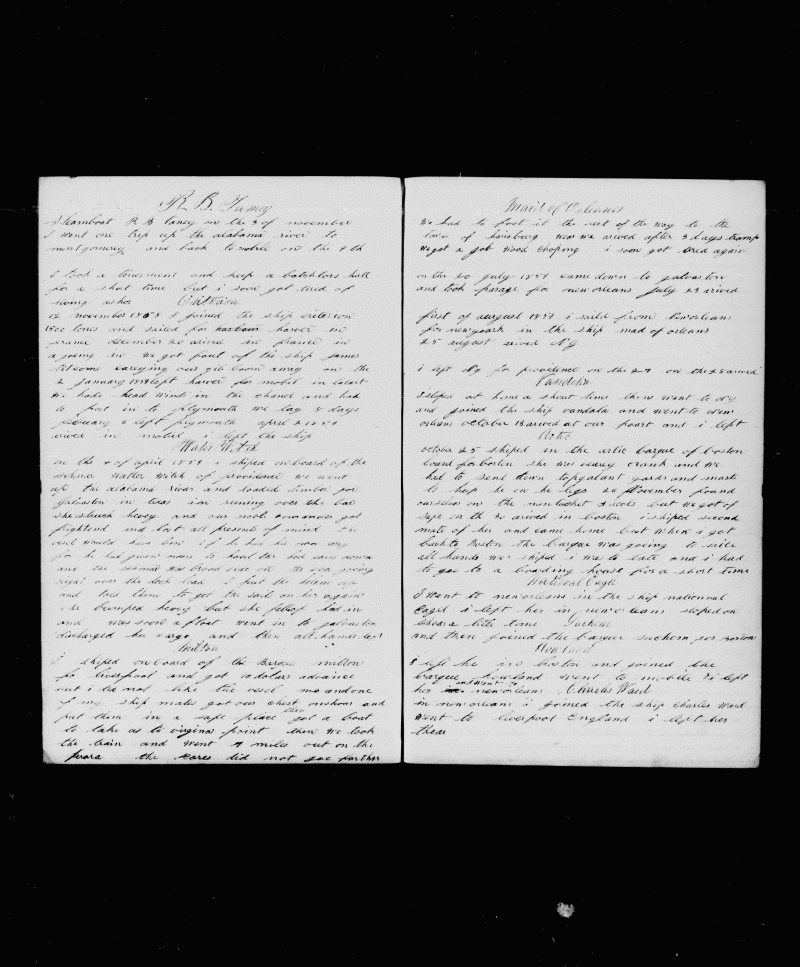 R. B. Taney
Steamboat R B Taney on the 3 of november
I went one trip up the alabama river to
montgomery and back to mobile on the 9 th
I took a tenement and keep a batchlors hall
for a short time but i soon got tired of
living ashor Criterion
12 november 1858 I joined the ship criterion
1500 tones and sailed for harver in
france december 20 arived in france in
a going in we got foul of the ship James
carreying our gib boom away on the
2 january 1859 left haver for mobil in
we hade head winds in the chanel and had
to put in to plymouth we lay 8 days
february 6 left plymouth april 2 1859
arived in mobil i left the ship
Water Witch
on the 4 of april 1859 i shiped onboard of the
Watter Witch of providence we went
up the alabama river and loaded lumber for
galveston in texas in runing over the bar
she struck heavy and our noble commander got
frightend and lost all presents of mind the
vesil would have been if he had his own way
for he had given orders to haul the down
and the was brood side on the sea going
right over the deck load I put the helem up
and told them to get the sail on her again
she bumped heavy but she in
and was soon afloat went in to galveston
discharged her cargo and then all hands left
Milton
I shiped onboard of the Barque milton
for liverpool and got 10 dolars advance
but i did not like the vesel me and one
of my ship mates got our chest onshore and
put them in a safe place then got a boat
to take us to virgina point then we took
the train and went 4 miles out on the
the cares did not goe farther
Maid of Orleanes
We had to foot it the rest of the way to the
town of harisburg wear we arived after 3 days tramp
we got a job wood choping i soon got tired again
on the 20 july 1859 came down to galveston
and took pasage for neworleans July 23 arived
first of august 1859 i saild from Neworleans
for newyoark in the ship mad of orleans
25 august arived N.y
i left Ny for providence on the 27 on the 28 arived
Vandalia
I stoped at home a short time then went to Ny
and joined the ship vandala and went to new
orleans october 13 arived at our poart and i left
Artic
october 25 shiped in the artic barque of boston
bound for boston she was veary crank and we
had to send down topgalant yards and masts
to keep he on he legs 20 November found
ourselves on the nantucket shoels but we got of
safe on the 30 arived in boston i shiped second
mate of her and came home but when i got
back to Boston the barque was going to saile
all hands wer shiped i was to late and i had
to goe to a boarding house for a short time
National Eagle
I went to neworleans in the ship nationnal
Eagel i left her in neworleans stoped on
a little time Suthern
and then joined the barque suthern for boston
Howland
I left he in boston and joined the
barque howland went to mobile & left
her and went to neworleans Charles Ward
in neworleans i joined the ship Charles Ward
went to liverpool England i left her
thear